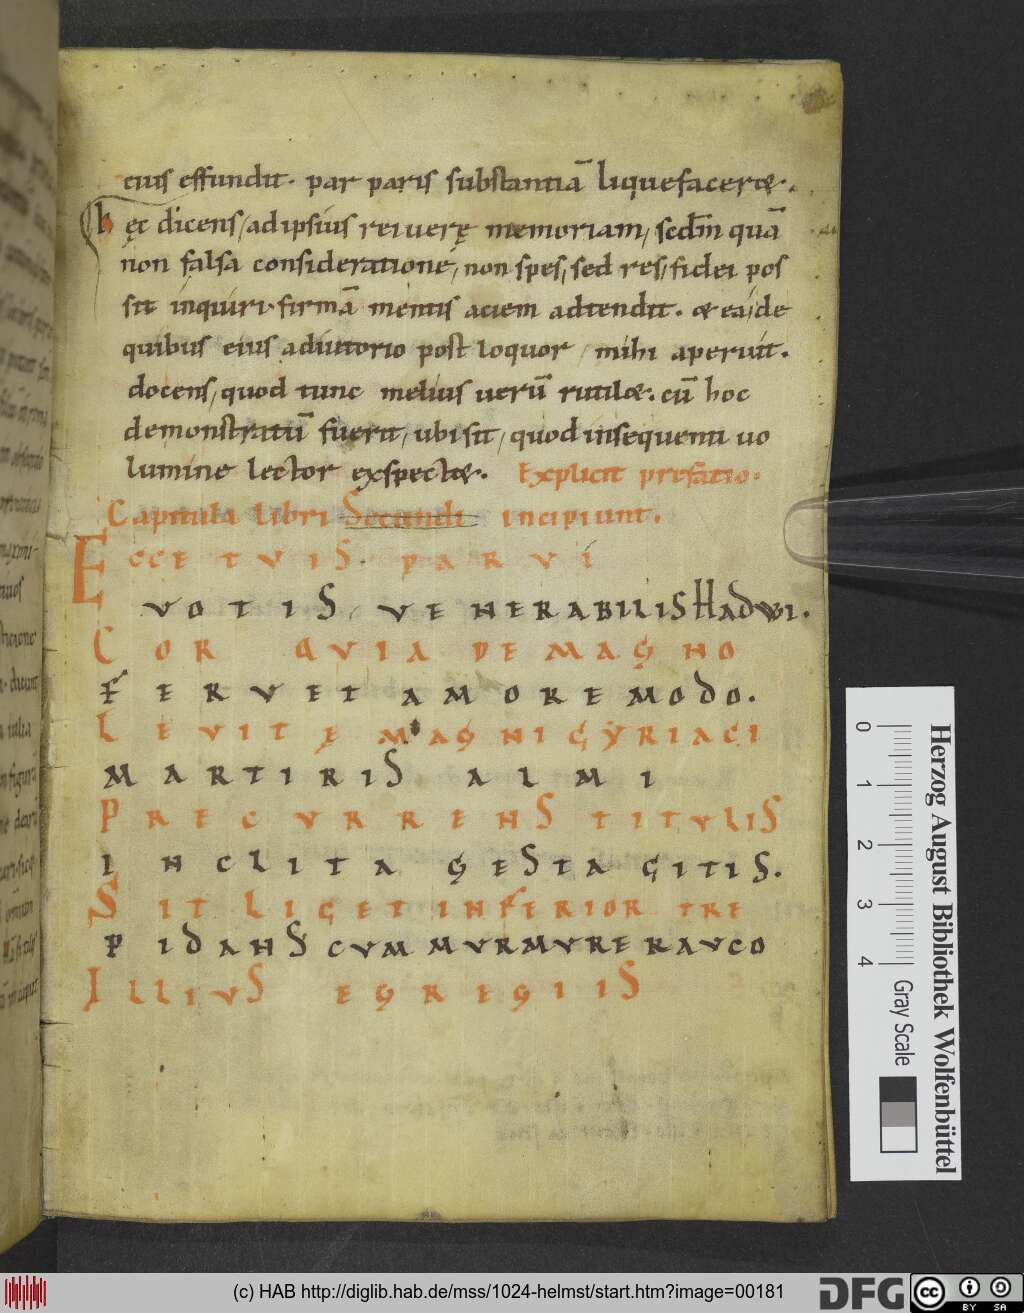 eius effundit. par paris substantiā liquefaceret.
hęc dicens, ad ipsius rei uerę memoriam, sedm̄ quā
non falsa consideratione, non spes, sed res, fidei pos
sit inquiri. firmā mentis aciem adtendit. & ea, de
quibus eius adiutorio post loquor, mihi aperuit.
docens, quod tunc melius uerū rutilet. cū hoc
demonstratū fuerit, ubi sit, quod insequenti uo
lumine lector exspectet. Explicit prefatio.
Capitula libri Secundi incipiunt.
ECCE TVIS. PARVI
VOTIS, VENERABILIS HADWI.
COR QVIA DE MAGNO
FERVET AMORE MODO.
LEVITĘ MAGNI CẎRIACI
MARTIRIS ALMI
PRECVRRENS TITVLIS
INCLITA GESTA CITIS.
SIT LICET INFERIOR TRE
PIDANS CVM MVRMVRE RAVCO
ILLIVS EGREGIIS
0
1
2
3
4
Gray Scale
Herzog August Bibliothek Wolfenbüttel
(c) HAB http://diglib.hab.de/mss/1024-helmst/start.htm?image=00181
DFG
cc
BY SA